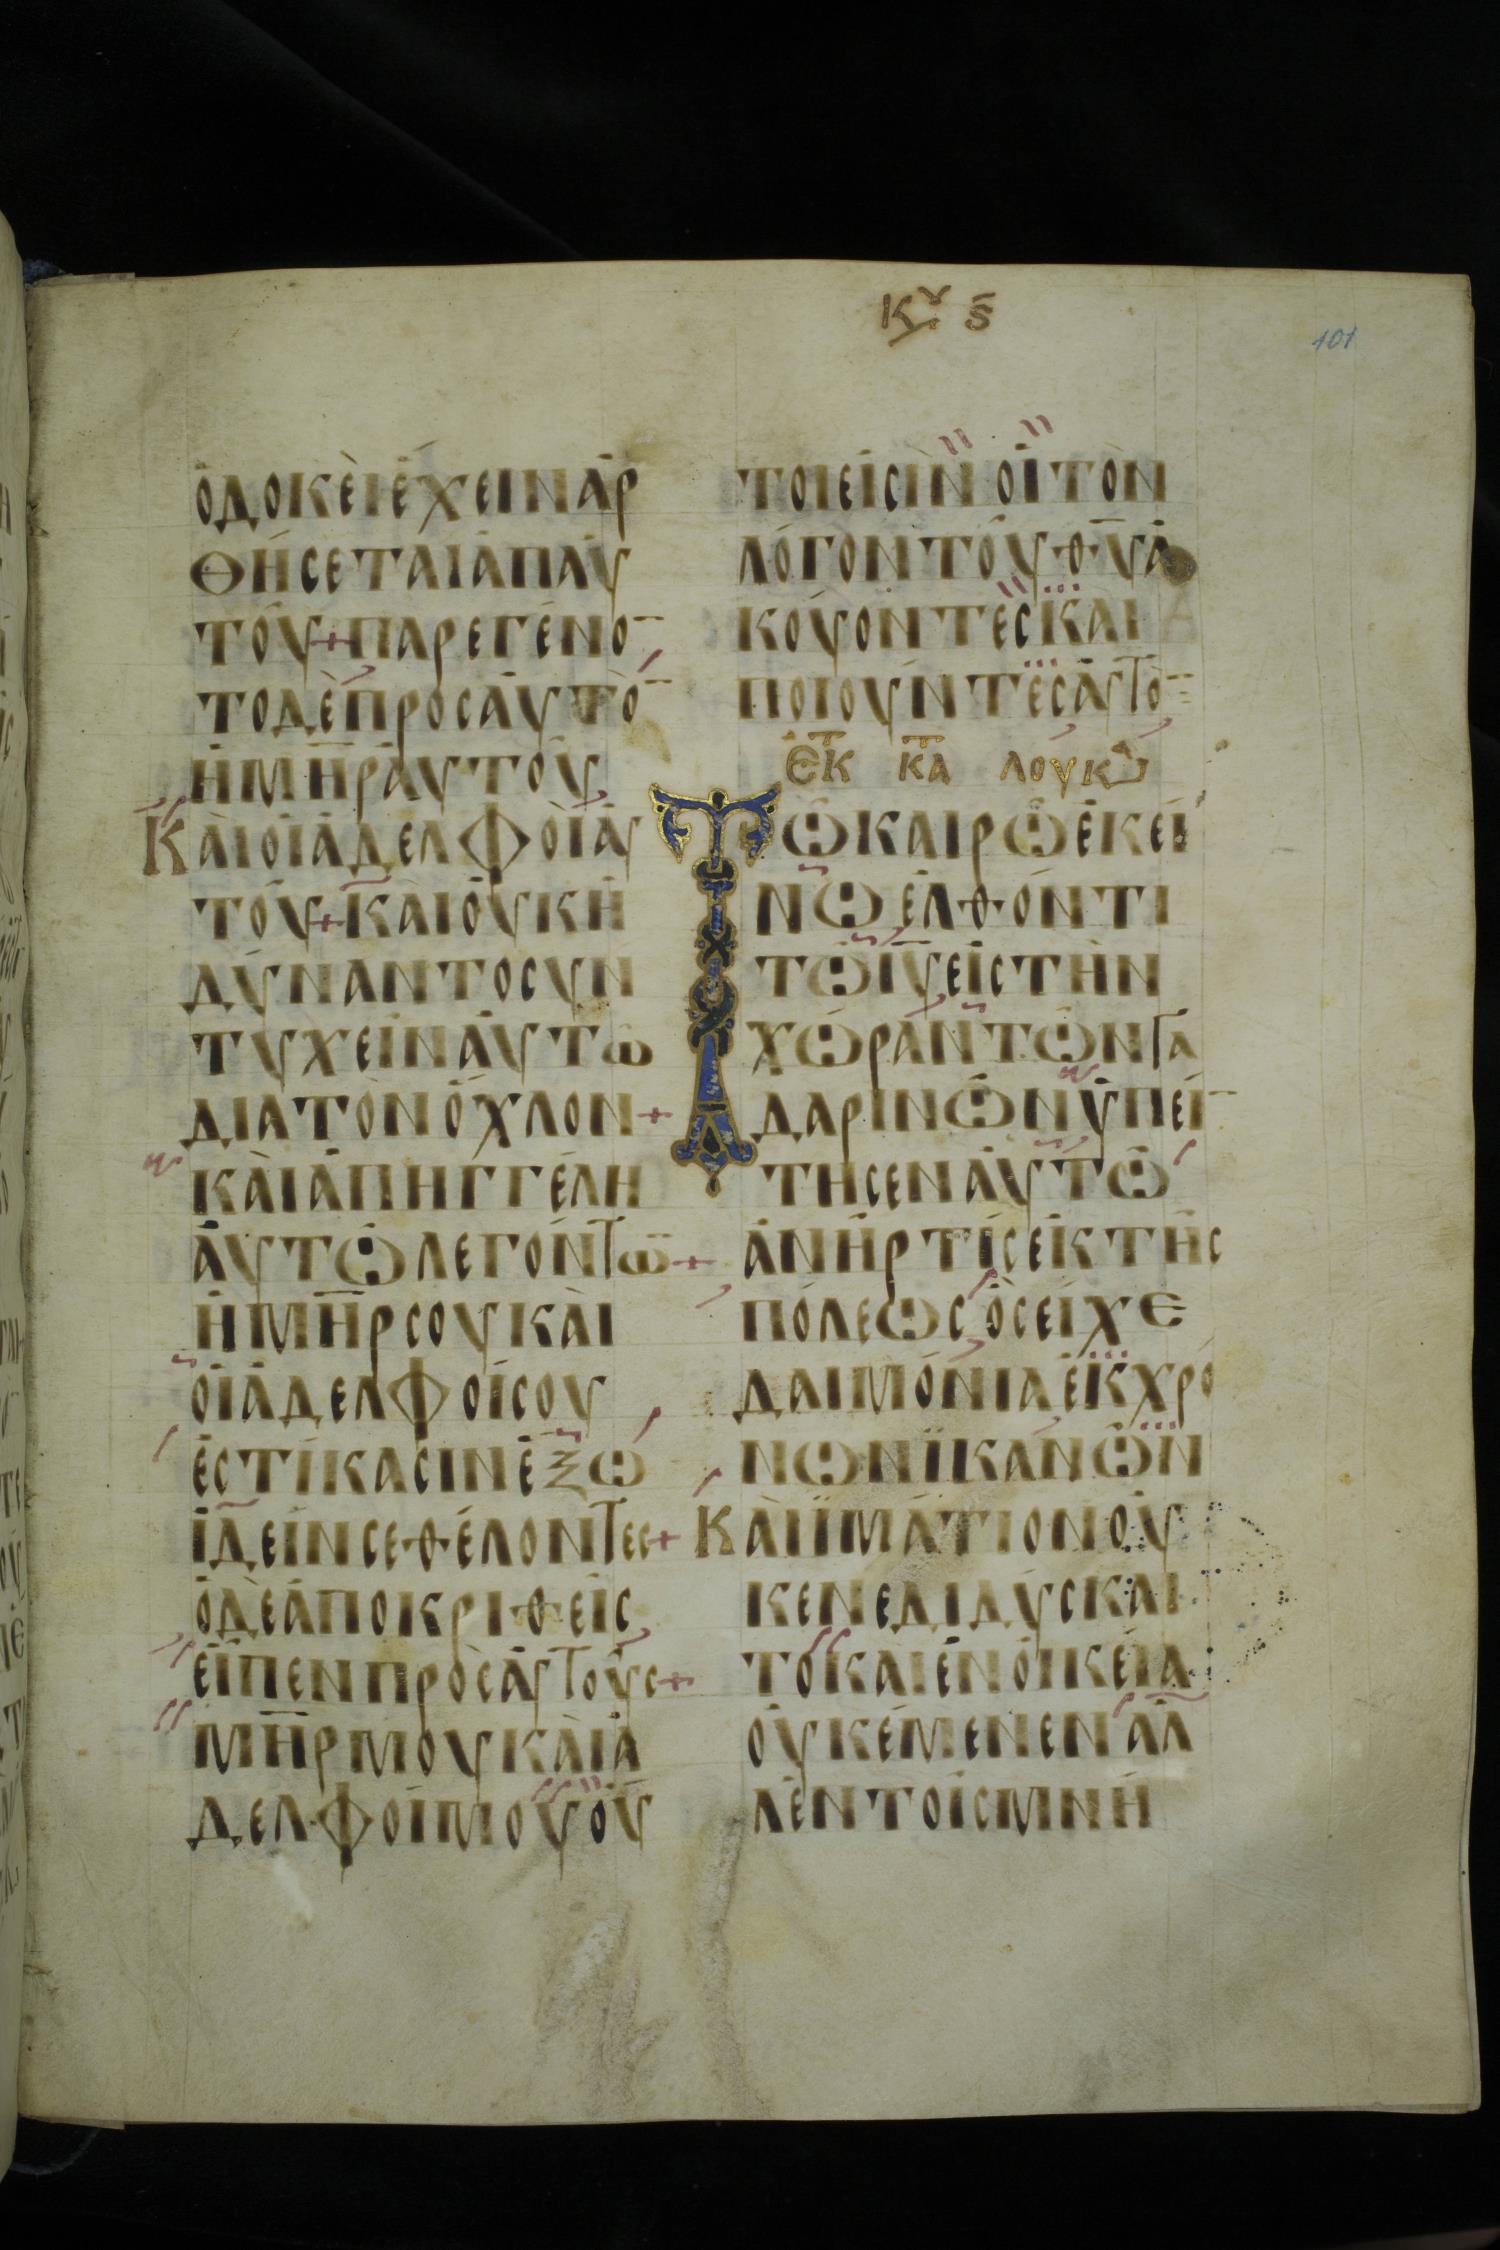 Κυ ς̄
101
ὁδοκὲιἔχειναρ
θήσεταιἀπαυ
τοῦ+παρεγένο̄
τοδὲπροσἀυτὸ̄
ἡμη̄ράυτοῦ
Κὰιοἱἀδελφοὶας
τοῦ+κὰιοὐκη
δύναντοσυν
τυχεῖναυτω
διατὸνὄχλον+
κὰιἀπηγγέλη
ἀυτῶλεγόντω̄+
ἡμη̄ρσουκὰι
ὁιἀδελφοίσου
ἑστίκασινέξω
ἰδεῖνσεθέλοντες+
ὁδὲἀποκριθεὶς
εἶπενπρὸςαςτούς+
μη̄ρμουκὰιἀ
δελφοίμουοὗ
τοιεἰσὶν οἱτὸν
λόγοντοῦθῡἀ
κούοντεςκαι
ποιουντεςάςτὸ̄
Ἐκ κα λουκα
Τῶκαιρῶἐκεί
νωἐλθόντι
τῶιῡεἰστὴν
χώραντῶνγα
δαρινῶνὑπεί̄
τησεναυτῶ
ἀνήρτίσεἰκτῆς
πόλεωςὃςεἶχε
δαιμόνιαἐκχρό
νωνϊκάνῶν
Κὰιἱμάτιονοὐ
κενεδιδύσκαι
τοκὰιἐνὀικεία
οὐκέμενεναλ
λἐντοῖσμνή